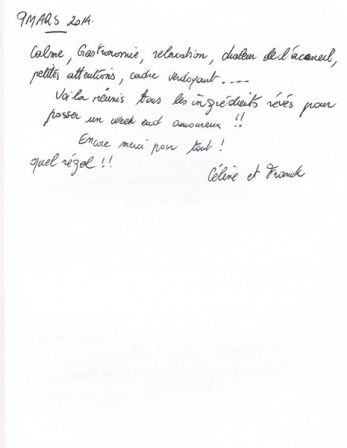 9 MARS 2014.
Calme, Gastronomie, relaxation, chaleur de l'accueil,
petites attentions, cadre verdoyant ....
Voilà réunis tous les ingrédients rêvés pour
passer un week end amoureux !!
Encore merci pour tout !
quel régal !!
Céline et Franck